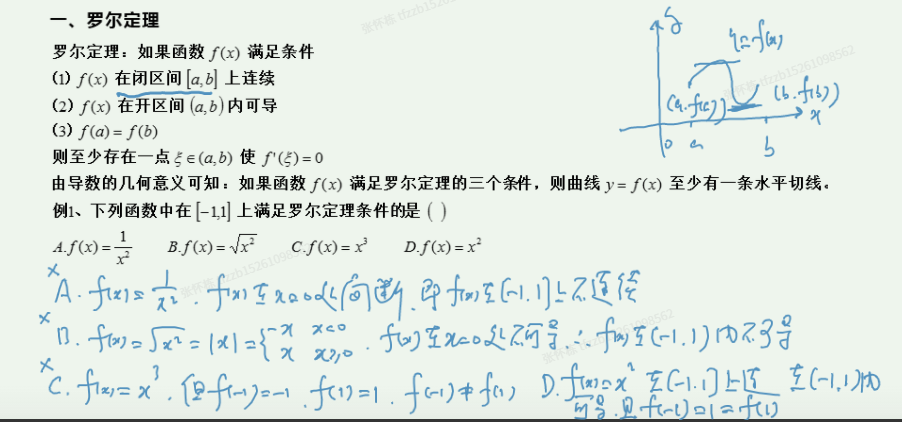 一、罗尔定理
罗尔定理：如果函数 f(x) 满足条件
(1) f(x) 在闭区间 [a,b] 上连续
(2) f(x) 在开区间 (a,b) 内可导
(3) f(a) = f(b)
则至少存在一点 ξ∈(a,b) 使 f'(ξ)=0
由导数的几何意义可知：如果函数 f(x) 满足罗尔定理的三个条件，则曲线 y=f(x) 至少有一条水平切线。
例1、下列函数中在 [−1,1] 上满足罗尔定理条件的是（ ）
A.f(x)=1/x² B.f(x)=√x² C.f(x)=x³ D.f(x)=x²
y
y=f(x)
(a.f(a)) (b.f(b))
x
0 a b
× A. f(x)=1/x². f(x)在x=0处间断,即f(x)在[-1.1]上不连续
× B. f(x)=√x²=|x|={-x x<0
x x≥0. f(x)在x=0处不可导∴f(x)在(-1,1)内不可导
× C. f(x)=x³. 但f(-1)=-1 . f(1)=1 . f(-1)≠f(1) D. f(x)=x² 在[-1.1]上连 在(-1,1)内
可导.且f(-1)=1=f(1)
张怀栋 tfzzb15261098562
张怀栋 tfzzb15261098562
张怀栋 tfzzb15261098562